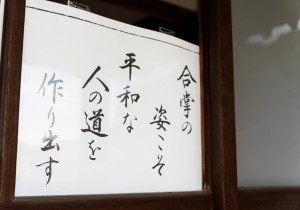 合掌の
姿こそ
平和な
人の道を
作り出す